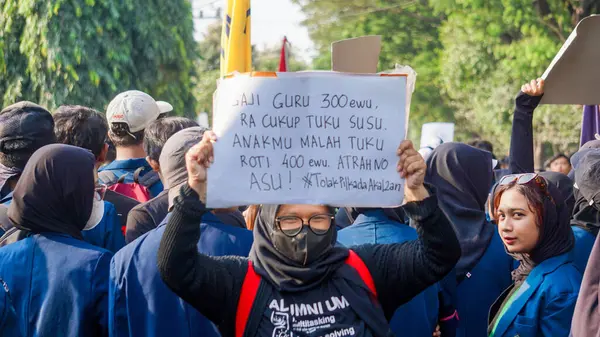 GAJI GURU 300 EWU.
RA CUKUP TUKU SUSU.
ANAKMU MALAH TUKU
ROTI 400 EWU. ATRAH NO
ASU! #TolakPilkadaAkal2an
ALUMNI UM
multitasking
problem solving